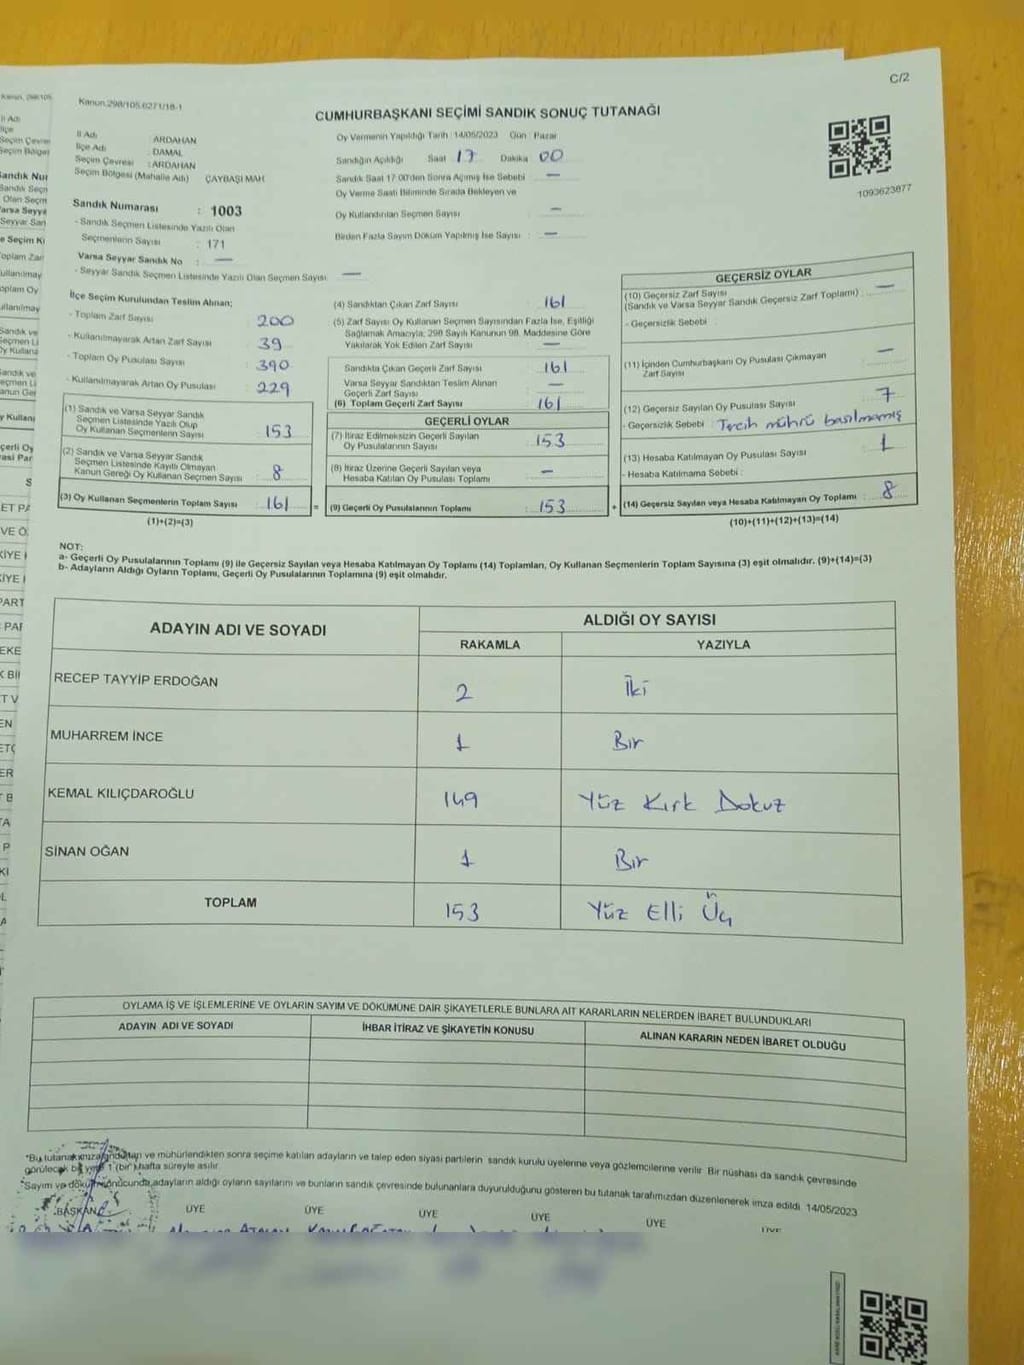 C/2
Kanun.298/105.6271/18-1
CUMHURBAŞKANI SEÇİMİ SANDIK SONUÇ TUTANAĞI
İl Adı : ARDAHAN
İlçe Adı : DAMAL
Seçim Çevresi : ARDAHAN
Seçim Bölgesi (Mahalle Adı) ÇAYBAŞI MAH
Sandık Numarası : 1003
- Sandık Seçmen Listesinde Yazılı Olan
Seçmenlerin Sayısı : 171
Varsa Seyyar Sandık No : —
- Seyyar Sandık Seçmen Listesinde Yazılı Olan Seçmen Sayısı : —
Oy Vermenin Yapıldığı Tarih : 14/05/2023 Gün : Pazar
Sandığın Açıldığı Saat 17 Dakika 00
Sandık Saat 17:00'den Sonra Açılmış İse Sebebi : —
Oy Verme Saati Bitiminde Sırada Bekleyen ve
Oy Kullandırılan Seçmen Sayısı : —
Birden Fazla Sayım Döküm Yapılmış İse Sayısı : —
1093623877
İlçe Seçim Kurulundan Teslim Alınan;
- Toplam Zarf Sayısı : 200
- Kullanılmayarak Artan Zarf Sayısı : 39
- Toplam Oy Pusulası Sayısı : 390
- Kullanılmayarak Artan Oy Pusulası : 229
(1) Sandık ve Varsa Seyyar Sandık
Seçmen Listesinde Yazılı Olup
Oy Kullanan Seçmenlerin Sayısı : 153
(2) Sandık ve Varsa Seyyar Sandık
Seçmen Listesinde Kayıtlı Olmayan
Kanun Gereği Oy Kullanan Seçmen Sayısı : 8
(3) Oy Kullanan Seçmenlerin Toplam Sayısı : 161 =
(1)+(2)=(3)
(4) Sandıktan Çıkan Zarf Sayısı : 161
(5) Zarf Sayısı Oy Kullanan Seçmen Sayısından Fazla İse, Eşitliği
Sağlamak Amacıyla; 298 Sayılı Kanunun 98. Maddesine Göre
Yakılarak Yok Edilen Zarf Sayısı : —
Sandıkta Çıkan Geçerli Zarf Sayısı : 161
Varsa Seyyar Sandıktan Teslim Alınan
Geçerli Zarf Sayısı : —
(6) Toplam Geçerli Zarf Sayısı : 161
GEÇERLİ OYLAR
(7) İtiraz Edilmeksizin Geçerli Sayılan
Oy Pusulalarının Sayısı : 153
(8) İtiraz Üzerine Geçerli Sayılan veya
Hesaba Katılan Oy Pusulası Toplamı : —
(9) Geçerli Oy Pusulalarının Toplamı : 153 +
GEÇERSİZ OYLAR
(10) Geçersiz Zarf Sayısı
(Sandık ve Varsa Seyyar Sandık Geçersiz Zarf Toplamı) : —
- Geçersizlik Sebebi :
(11) İçinden Cumhurbaşkanı Oy Pusulası Çıkmayan
Zarf Sayısı : —
(12) Geçersiz Sayılan Oy Pusulası Sayısı : 7
- Geçersizlik Sebebi : Tercih mührü basılmamış
(13) Hesaba Katılmayan Oy Pusulası Sayısı : 1
- Hesaba Katılmama Sebebi :
(14) Geçersiz Sayılan veya Hesaba Katılmayan Oy Toplamı : 8
(10)+(11)+(12)+(13)=(14)
NOT:
a- Geçerli Oy Pusulalarının Toplamı (9) ile Geçersiz Sayılan veya Hesaba Katılmayan Oy Toplamı (14) Toplamları, Oy Kullanan Seçmenlerin Toplam Sayısına (3) eşit olmalıdır. (9)+(14)=(3)
b- Adayların Aldığı Oyların Toplamı, Geçerli Oy Pusulalarının Toplamına (9) eşit olmalıdır.
ADAYIN ADI VE SOYADI
ALDIĞI OY SAYISI
RAKAMLA YAZIYLA
RECEP TAYYİP ERDOĞAN 2 İki
MUHARREM İNCE 1 Bir
KEMAL KILIÇDAROĞLU 149 Yüz Kırk Dokuz
SİNAN OĞAN 1 Bir
TOPLAM 153 Yüz Elli Üç
OYLAMA İŞ VE İŞLEMLERİNE VE OYLARIN SAYIM VE DÖKÜMÜNE DAİR ŞİKAYETLERLE BUNLARA AİT KARARLARIN NELERDEN İBARET BULUNDUKLARI
ADAYIN ADI VE SOYADI İHBAR İTİRAZ VE ŞİKAYETİN KONUSU ALINAN KARARIN NEDEN İBARET OLDUĞU
ve mühürlendikten sonra seçime katılan adayların ve talep eden siyasi partilerin sandık kurulu üyelerine veya gözlemcilerine verilir. Bir nüshası da sandık çevresinde
görülecek bir yere 1 (bir) hafta süreyle asılır.
*Sayım ve döküm sonucunda adayların aldığı oyların sayılarını ve bunların sandık çevresinde bulunanlara duyurulduğunu gösteren bu tutanak tarafımızdan düzenlenerek imza edildi. 14/05/2023
BAŞKAN ÜYE ÜYE ÜYE ÜYE ÜYE ÜYE